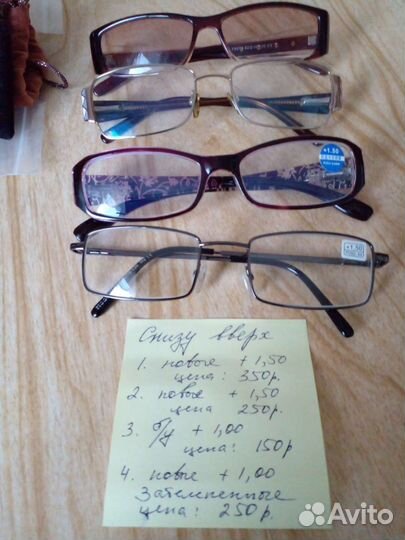 +1.50
+1.50
Снизу вверх
1. новые + 1,50
цена: 350р.
2. новые + 1,50
цена 250р.
3. б/у + 1,00
цена: 150р
4. новые + 1,00
Затемненные
цена: 250р.
Avito